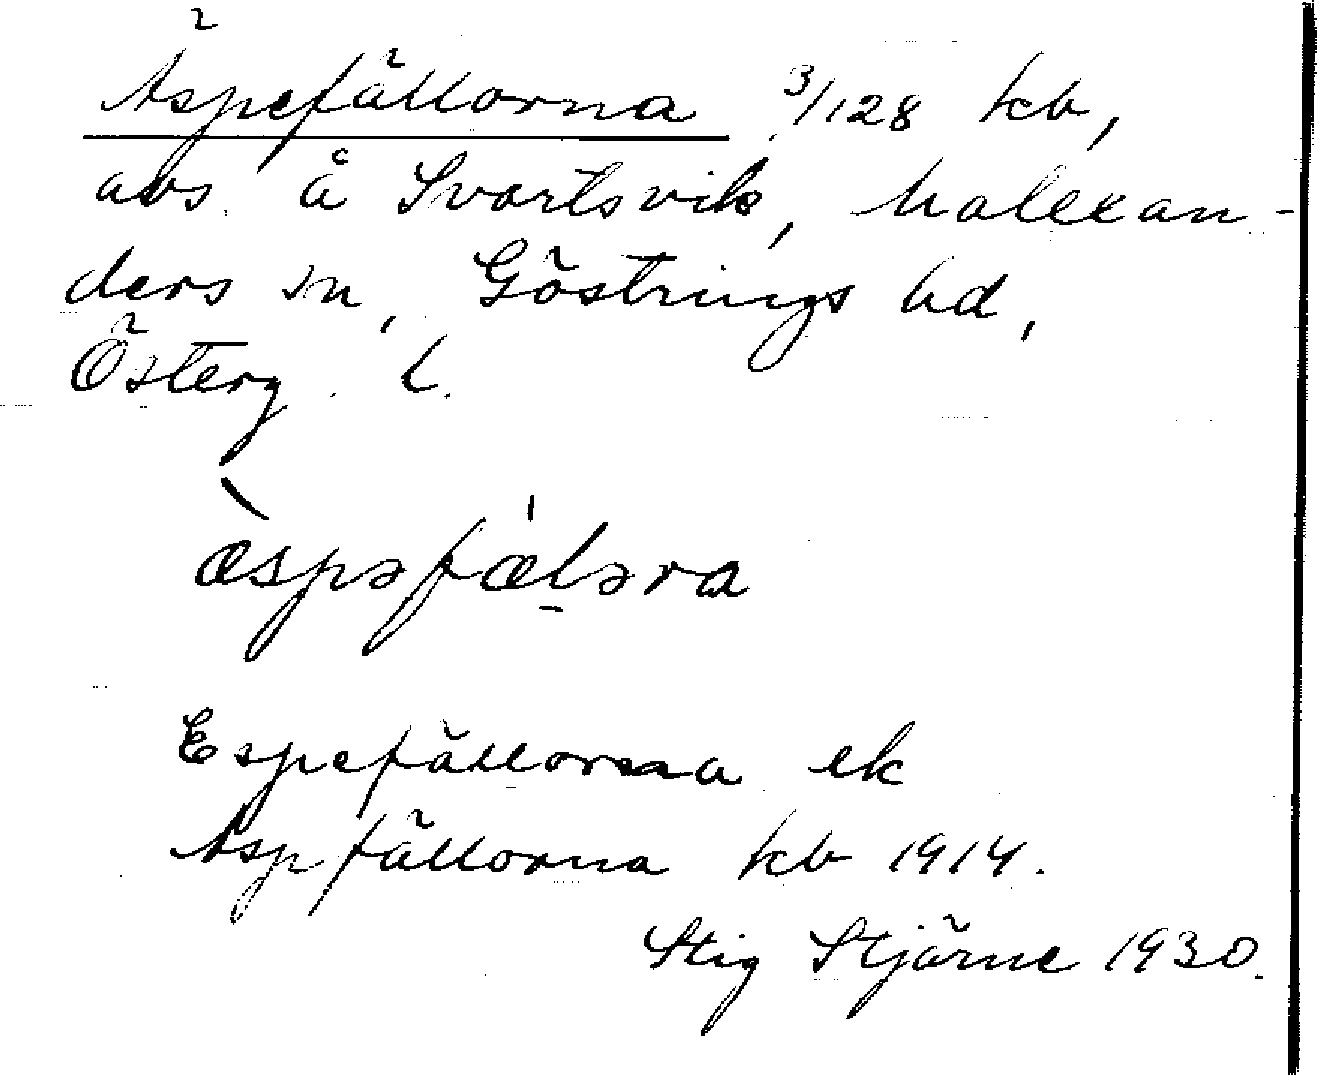 Äspefällorna 3/128 kb,
avs. å Svartsvik, Malexan-
ders sn, Göstrings hd,
Österg. l.
æ̀spəfæ̍ḷəra
Espefällorna ek
Aspfällorna kb 1914.
Stig Stjärne 1930.